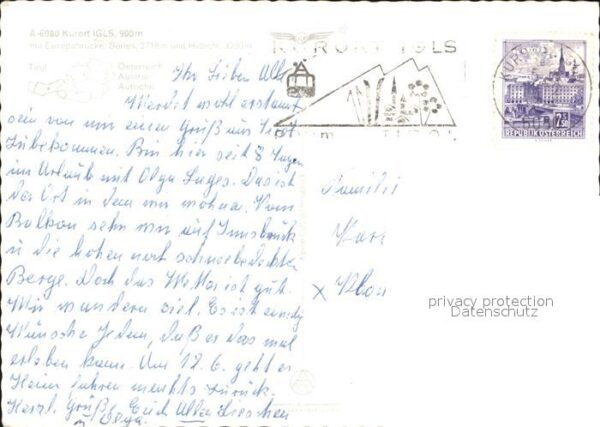 A-6080 Kurort IGLS, 900m
mit Europabrücke, Serles, 2718m und Habicht, 3280m
Tirol
Österreich
Austria
Autriche
KURORT IGLS
TIROL
REPUBLIK ÖSTERREICH
Ihr Lieben Alle
Werdet wohl erstaunt
sein von mir einen Gruß aus Tirol
zu bekommen. Bin hier seit 8 Tagen
im Urlaub mit Olga Lages. Das ist
der Ort in dem wir wohnen. Vom
Balkon sehn wir auf Innsbruck
u die hohen noch schneebedeckten
Berge. Doch das Wetter ist gut.
Wir wandern viel. Es ist einzig
Wünsche Jedem, daß er das mal
erleben kann. Am 12.6. geht es
Heim fahren nachts zurück.
Herzl. Grüße Euch Allen Lieschen
u Olga.
Familie
Karl
privacy protection
Datenschutz